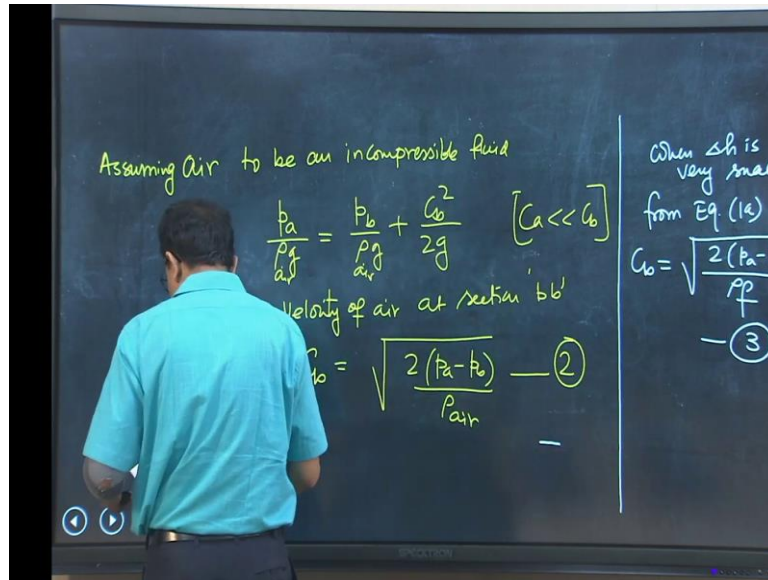 Assuming air to be an incompressible fluid
p_a/ρ_air g = p_b/ρ_air g + C_b²/2g [Ca << Cb]
velocity of air at section 'bb'
= √(2(p_a-p_b)/ρ_air) — ②
—
when Δh is
very
from Eq. (1a)
C_b = √(2(p_a-
ρ_f
— ③
SPECKTRON